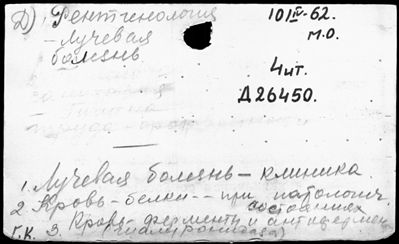 Д) Рентгенология
- Лучевая
болезнь
10 IV-62.
М.О.
4 ит.
Д26450.
1. Лучевая болезнь - клиника
2. Кровь - белки -- при патологич.
состояниях
Г.К. 3. Кровь - ферменты и антифермен
(гиалуронидаза)